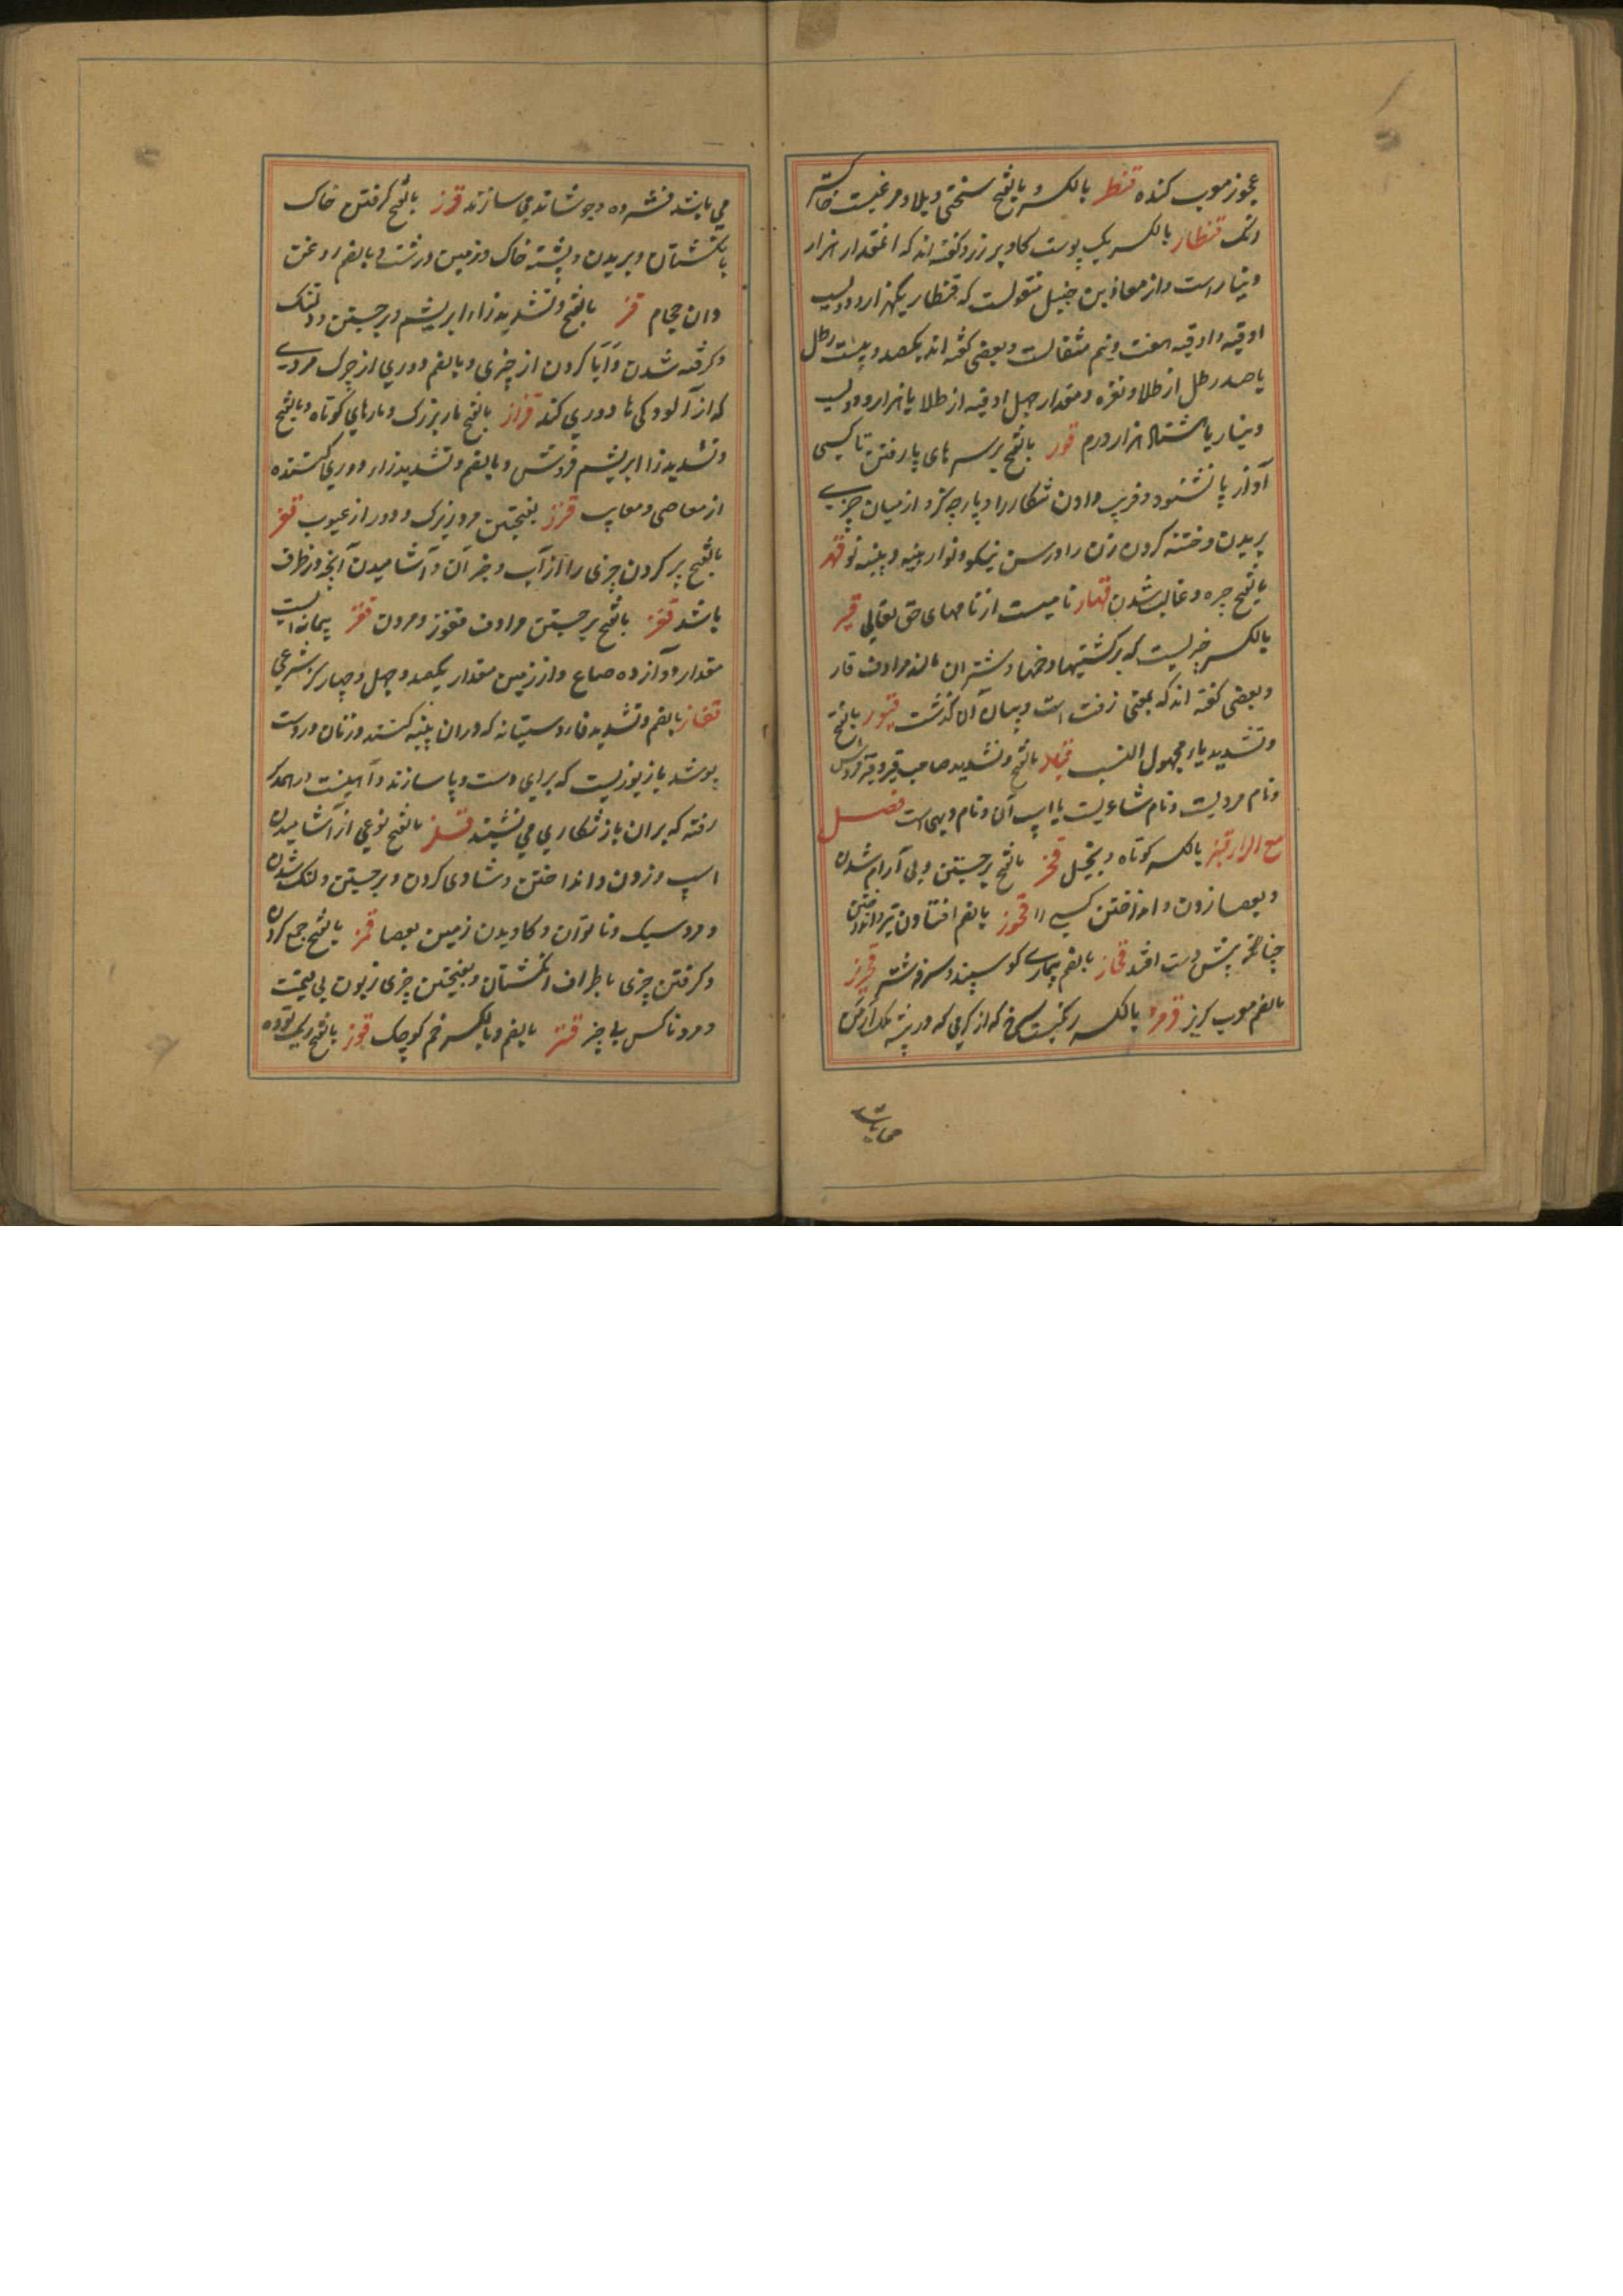 عجوز موب کنده قنطر بالکسر و بالفتح سختی و بلا و مرغیست خاکستر
رنک قنطار بالکسر یک پوست کاو پر زر و کفته اند که انمقدار هزار
دینار است و از معاذ بن جبل منقولست که قنطار یکهزار و دویست
اوقیه و اوقیه هفت و نیم مثقالست و بعضی کفته اند یکصد و بیست رطل
یا صد رطل از طلا و نقره و مقدار چهل اوقیه از طلا یا هزار و دویست
دینار یا هشتاد هزار درم قور بالفتح بر سرهای پا رفتن تا کسی
آواز پا نشنود و فریب دادن شکار را و پارچه کرد از میان چیزی
بریدن و ختنه کردن زن را و رسن نیکو و نو از پنبه و پنبه نو قهر
بالفتح چیره و غالب شدن قهار نامیست از نامهای حق تعالی قیر
بالکسر چیزیست که بر کشتیها و خمها و شتران مالند مرادف قار
و بعضی کفته اند که بمعنی زفت است و بیان آن گذشت قیور بالفتح
و تشدید یا مجهول النسب قیار بالفتح و تشدید صاحب قیر و قیر فروش
و نام مردیست و نام شاعریست یا اسپ آن و نام دیهی است فصل
مع الزا قبز بالکسر کوتاه و بخیل قحز بالفتح برجستن و بی آرام شدن
و بعصا زدن و انداختن کسی را قحوز بالضم افتادن تیر و انداختن
چنانکه پیش دست افتد قحاز بالضم بیماری کوسپند و سرفه شتر قحریز
بالضم موب کریز قرمز بالکسر رنکیست سرخ که از کرمی که در بیشه ملک ارمن
می باشد فشرده و جوشانده می سازند قرز بالفتح کرفتن خاک
بانکشتان و بریدن و پشته خاک و زمین درشت و بالضم روغن
دان حجام قز بالفتح و تشدید زا ابریشم و برجستن و دلتنک
و کرفته شدن و آبا کردن از چیزی و بالضم دوری از چرک مردی
که از آلودکی ها دوری کند قزاز بالفتح مار بزرک و مارهای کوتاه و بالفتح
و تشدید زا ابریشم فروش و بالضم و تشدید زا دوری کننده
از معاصی و معایب قزز بفتحتین مرد زیرک و دور از عیوب قعز
بالفتح پر کردن چیزی را از آب و جز آن و آشامیدن آنچه در ظرف
باشد قفز بالفتح برجستن مرادف قفوز و مردن قفیز پیمانه ایست
مقدار دوازده صاع و از زمین مقدار یکصد و چهل و چهار کز شرعی
قفاز بالضم و تشدید فا دوستانه که دران پنبه کنند و زنان در دست
پوشند یا زیوریست که برای دست و پا سازند و آهنیست
رفته که بران باز شکاری می نشیند قلز بالفتح نوعی از آشامیدن
اسپ و زدن و انداختن و شادی کردن و برجستن و لنک شدن
و مرد سبک و ناتوان و کاویدن زمین بعصا قمز بالفتح جمع کردن
و کرفتن چیزی باطراف انکشتان و بفتحتین چیزی زبون بی قیمت
و مرد ناکس بی چیز قنز بالضم و بالکسر خم کوچک قوز بالفتح ریک توده